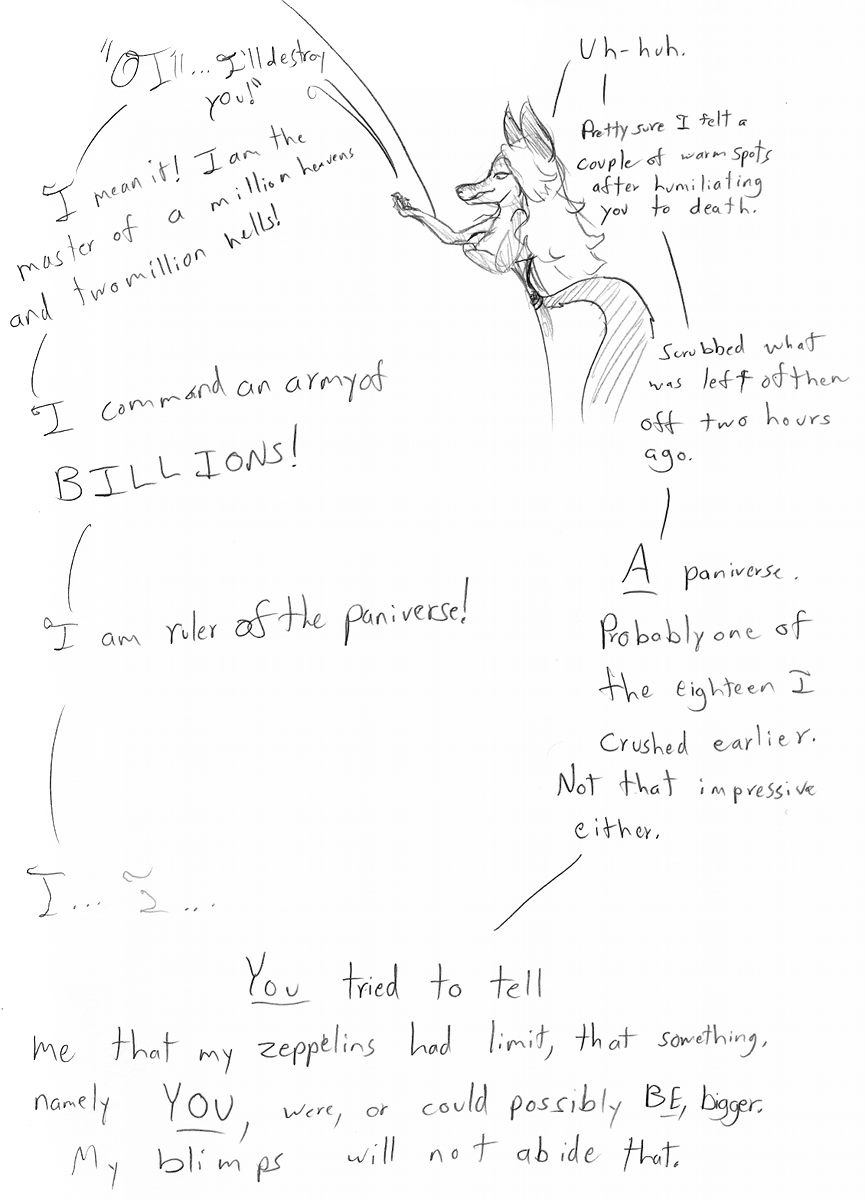 "OI'll... I'll destroy
you!"
I mean it! I am the
master of a million heavens
and two million hells!
I command an army of
BILLIONS!
I am ruler of the paniverse!
I... I...
Uh-huh.
Pretty sure I felt a
couple of warm spots
after humiliating
you to death.
Scrubbed what
was left of then
off two hours
ago.
A paniverse.
Probably one of
the eighteen I
crushed earlier.
Not that impressive
either.
You tried to tell
me that my zeppelins had limit, that something,
namely YOU, were, or could possibly BE, bigger.
My blimps will not abide that.